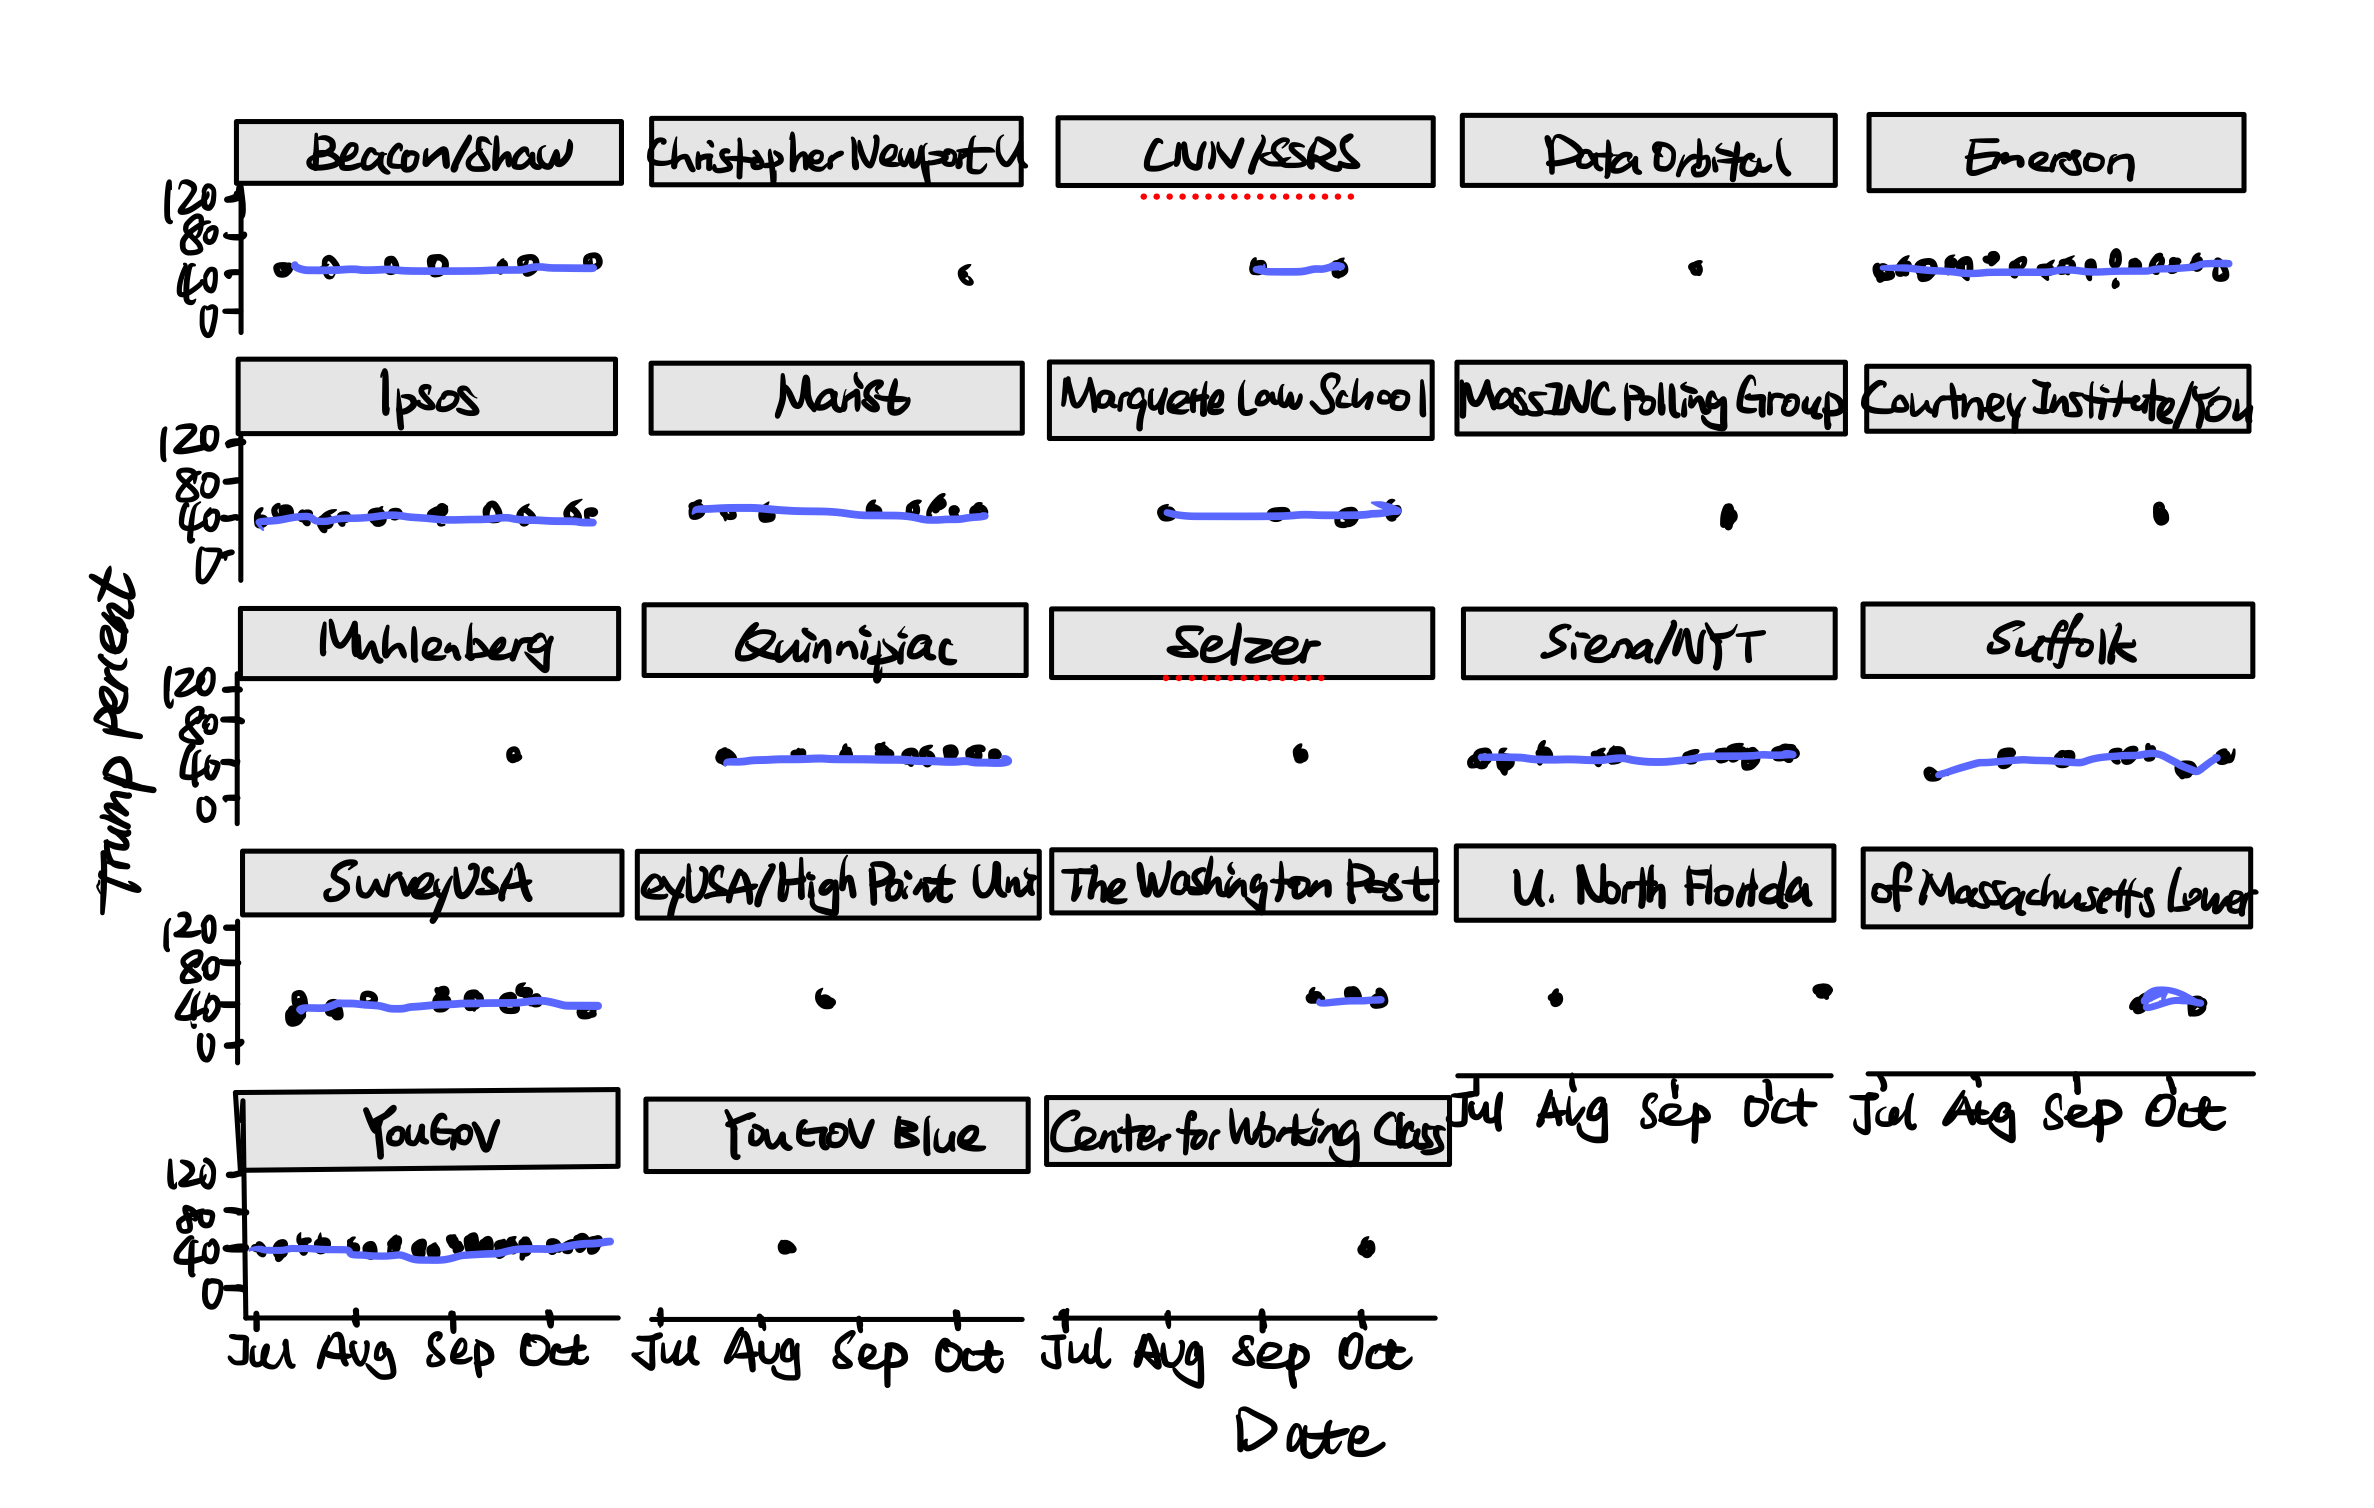 Beacon/Shaw
Christopher Newport U
CNN/SSRS
Data Orbital
Emerson
120
80
40
0
Ipsos
Marist
Marquette Law School
MassINC Polling Group
Courtney Institute/You
120
80
40
0
Muhlenberg
Quinnipiac
Selzer
Siena/NYT
Suffolk
120
80
40
0
SurveyUSA
eyUSA/High Point Uni
The Washington Post
U. North Florida
of Massachusetts Lower
120
80
40
0
Jul Aug Sep Oct
Jul Aug Sep Oct
YouGov
YouGov Blue
Center for Working Class
120
80
40
0
Jul Aug Sep Oct
Jul Aug Sep Oct
Jul Aug Sep Oct
Trump percent
Date